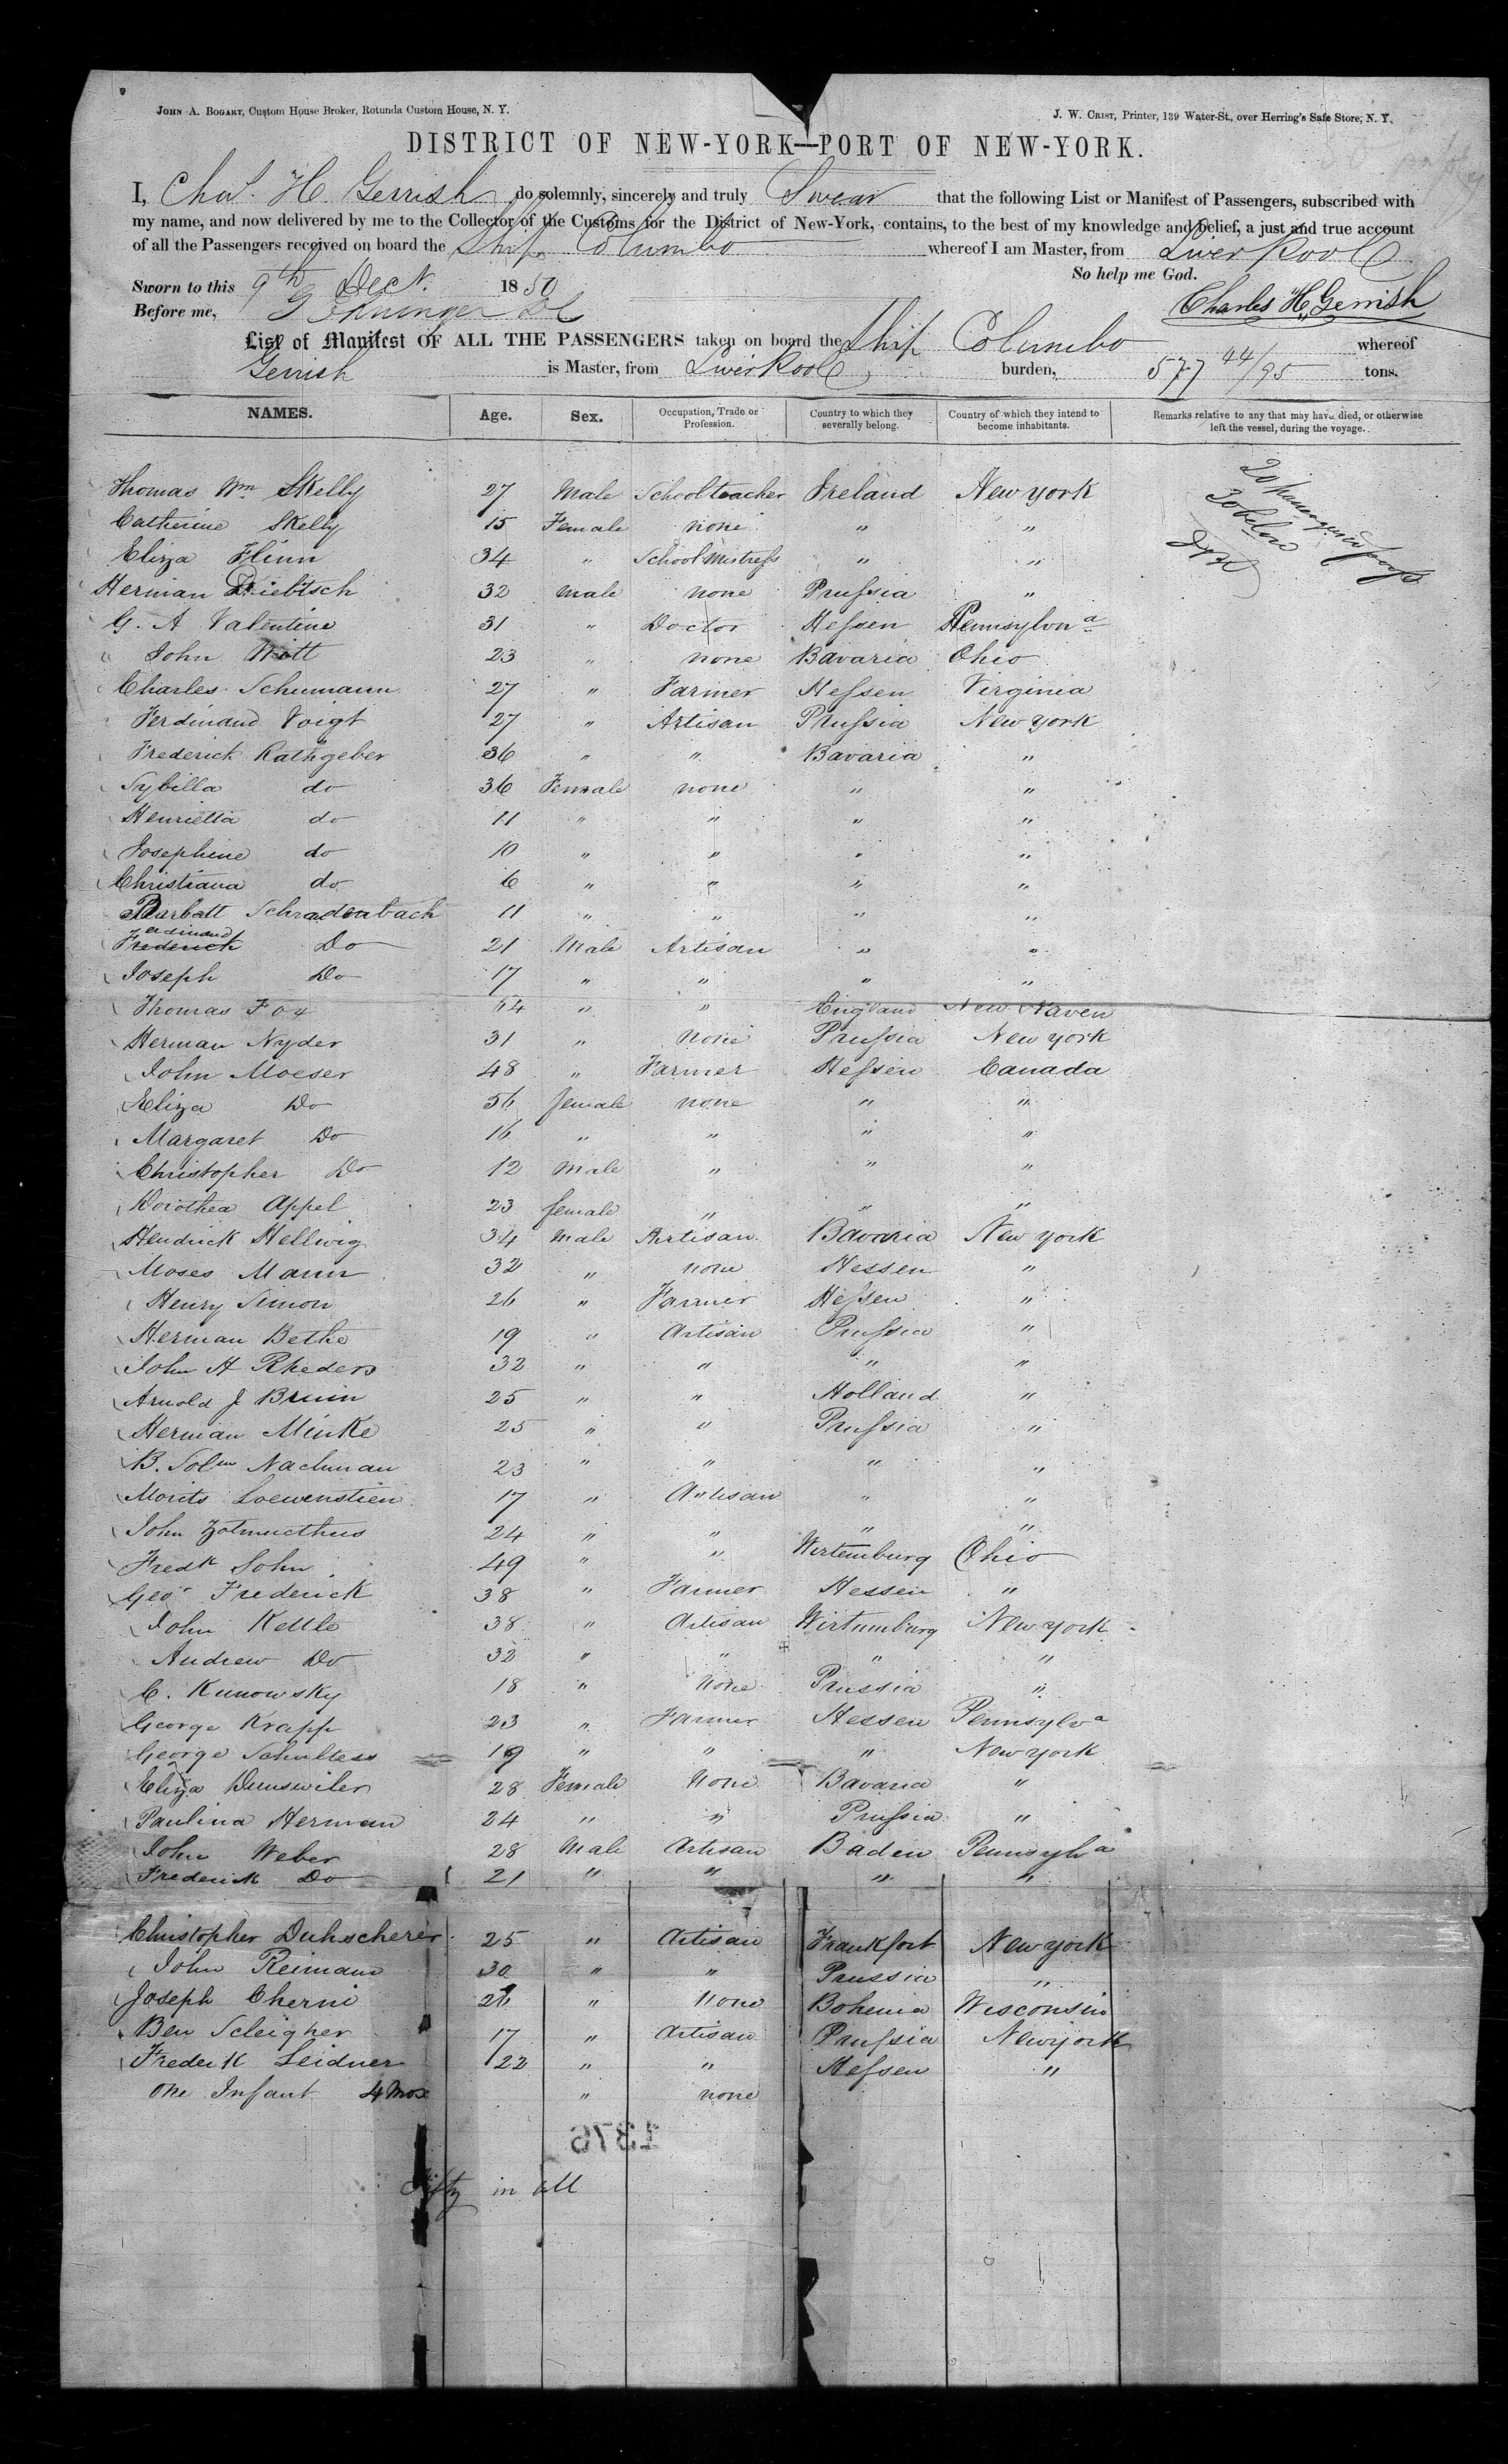 JOHN A. BOGART, Custom House Broker, Rotunda Custom House, N. Y.
J. W. CRIST, Printer, 139 Water-St., over Herring's Safe Store, N. Y.
DISTRICT OF NEW-YORK—PORT OF NEW-YORK.
I, Chas. H Gerrish do solemnly, sincerely and truly Swear that the following List or Manifest of Passengers, subscribed with
my name, and now delivered by me to the Collector of the Customs for the District of New-York, contains, to the best of my knowledge and belief, a just and true account
of all the Passengers received on board the Ship Columbo whereof I am Master, from Liverpool
So help me God.
Sworn to this 9th Decr. 1850
Charles H. Gerrish
Before me,
List of Manifest OF ALL THE PASSENGERS taken on board the Ship Columbo whereof
Gerrish is Master, from Liverpool burden, 577 44/95 tons.
NAMES. Age. Sex. Occupation, Trade or Profession. Country to which they severally belong. Country of which they intend to become inhabitants. Remarks relative to any that may have died, or otherwise left the vessel, during the voyage.
Thomas Wm Skelly 27 Male Schoolteacher Ireland New york
Catherine Skelly 15 Female none " "
Eliza Flinn 34 " School Mistress " "
Herman Driebtsch 32 male none Prussia "
G. A Valentine 31 " Doctor Hessen Pennsylvna
John Witt 23 " none Bavaria Ohio
Charles Schumann 27 " Farmer Hessen Virginia
Ferdinand Voigt 27 " Artisan Prussia New york
Frederick Rathgeber 36 " " Bavaria "
Sybilla do 36 Female none " "
Henrietta do 11 " " " "
Josephine do 10 " " " "
Christiana do 6 " " " "
Barbatt Schradenbach 11 " " " "
Ferdinand Do 21 Male Artisan " "
Joseph Do 17 " " " "
Thomas Fox 54 " " England New Haven
Herman Nyder 31 " None Prussia New york
John Moeser 48 " Farmer Hessen Canada
Eliza Do 56 female none " "
Margaret Do 16 " " " "
Christopher Do 12 Male " " "
Dorothea Appel 23 female " " "
Hendrick Hellwig 34 Male Artisan Bavaria New york
Moses Mann 32 " none Hessen "
Henry Simon 26 " Farmer Hessen "
Herman Bethe 19 " Artisan Prussia "
John H Rheders 32 " " " "
Arnold J Bruin 25 " " Holland "
Herman Minke 25 " " Prussia "
B. Solm Nachman 23 " " " "
Morits Loewenstien 17 " Artisan " "
John 24 " " " "
Fredk Sohn 49 " " Wirtemburg Ohio
Geo Frederick 38 " Farmer Hessen "
John Kettle 38 " Artisan Wirtumburg New york
Andrew Do 32 " " " "
C. Kunowsky 18 " None Prussia "
George Krapp 23 " Farmer Hessen Pennsylva
George Schultess 19 " " " New york
Eliza Dunswiler 28 Female None Bavaria "
Paulina Herman 24 " " Prussia "
John Weber 28 Male Artisan Baden Pennsylva
Frederick Do 21 " " " "
Christopher Duhscherer 25 " Artisan Frankfort New york
John Reimann 30 " " Prussia "
Joseph Cherni " None Bohemia Wisconsin
Ben Scleigher 17 " Artisan Prussia New york
Frederik Leidner 22 " " Hessen "
One Infant 4 Mos " none
1376
Fifty in all